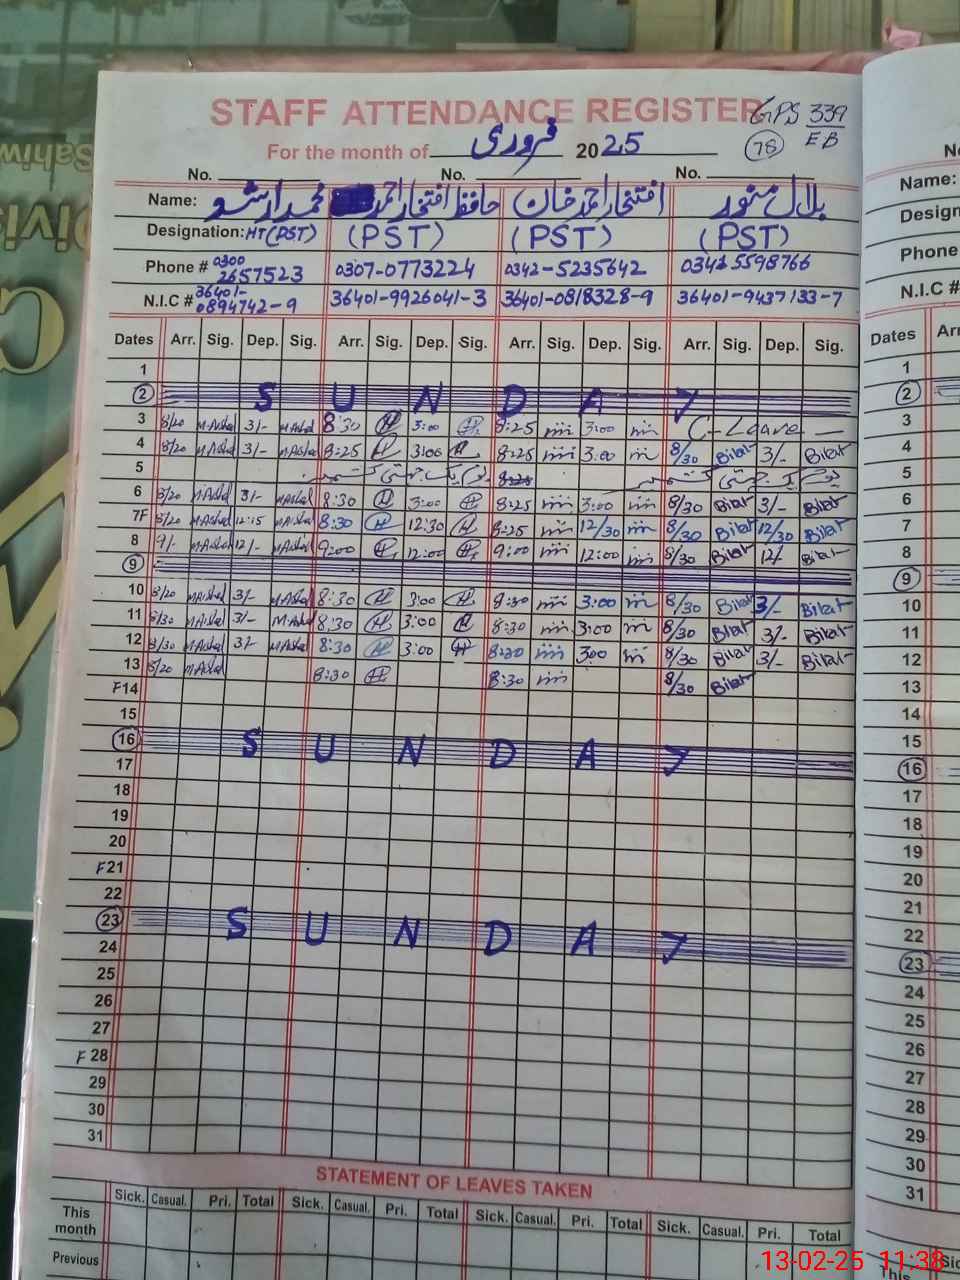 STAFF ATTENDANCE REGISTER GPS 339
For the month of فروری 2025 78 EB
No. No. No.
Name: محمد ارشد حافظ افتخار احمد افتخار احمد خان بلال منور
Designation: HT (PST) (PST) (PST) (PST)
Phone # 0300 2657523 0307-0773224 0342-5235642 0341 5598766
N.I.C # 36401-0894742-9 36401-9926041-3 36401-0818328-9 36401-9437133-7
Dates Arr. Sig. Dep. Sig. Arr. Sig. Dep. Sig. Arr. Sig. Dep. Sig. Arr. Sig. Dep. Sig.
1
2 S U N D A Y
3 8/20 M Ashad 3/- M Ashad 8:30 3:00 8:25 3:00 C-Leave
4 8/20 M Ashad 3/- M Ashad 8:25 3:00 8:25 3:00 8/30 Bilal 3/- Bilal
5 یوم یکجہتی کشمیر 8:25 یوم یکجہتی کشمیر
6 8/20 M Ashad 3/- M Ashad 8:30 3:00 8:25 3:00 8/30 Bilal 3/- Bilal
7F 8/20 M Ashad 12:15 M Ashad 8:30 12:30 8:25 12/30 8/30 Bilal 12/30 Bilal
8 9/- M Ashad 12/- M Ashad 9:00 12:00 9:00 12:00 8/30 Bilal 12/- Bilal
9
10 8/20 M Ashad 3/- M Ashad 8:30 3:00 8:30 3:00 8/30 Bilal 3/- Bilal
11 8/30 M Ashad 3/- M Ashad 8:30 3:00 8:30 3:00 8/30 Bilal 3/- Bilal
12 8/30 M Ashad 3/- M Ashad 8:30 3:00 8:30 3:00 8/30 Bilal 3/- Bilal
13 8/20 M Ashad 8:30 8:30 8/30 Bilal
F14
15
16 S U N D A Y
17
18
19
20
F21
22
23 S U N D A Y
24
25
26
27
F 28
29
30
31
STATEMENT OF LEAVES TAKEN
Sick. Casual. Pri. Total Sick. Casual. Pri. Total Sick. Casual. Pri. Total Sick. Casual. Pri. Total
This month
Previous
13-02-25 11:38